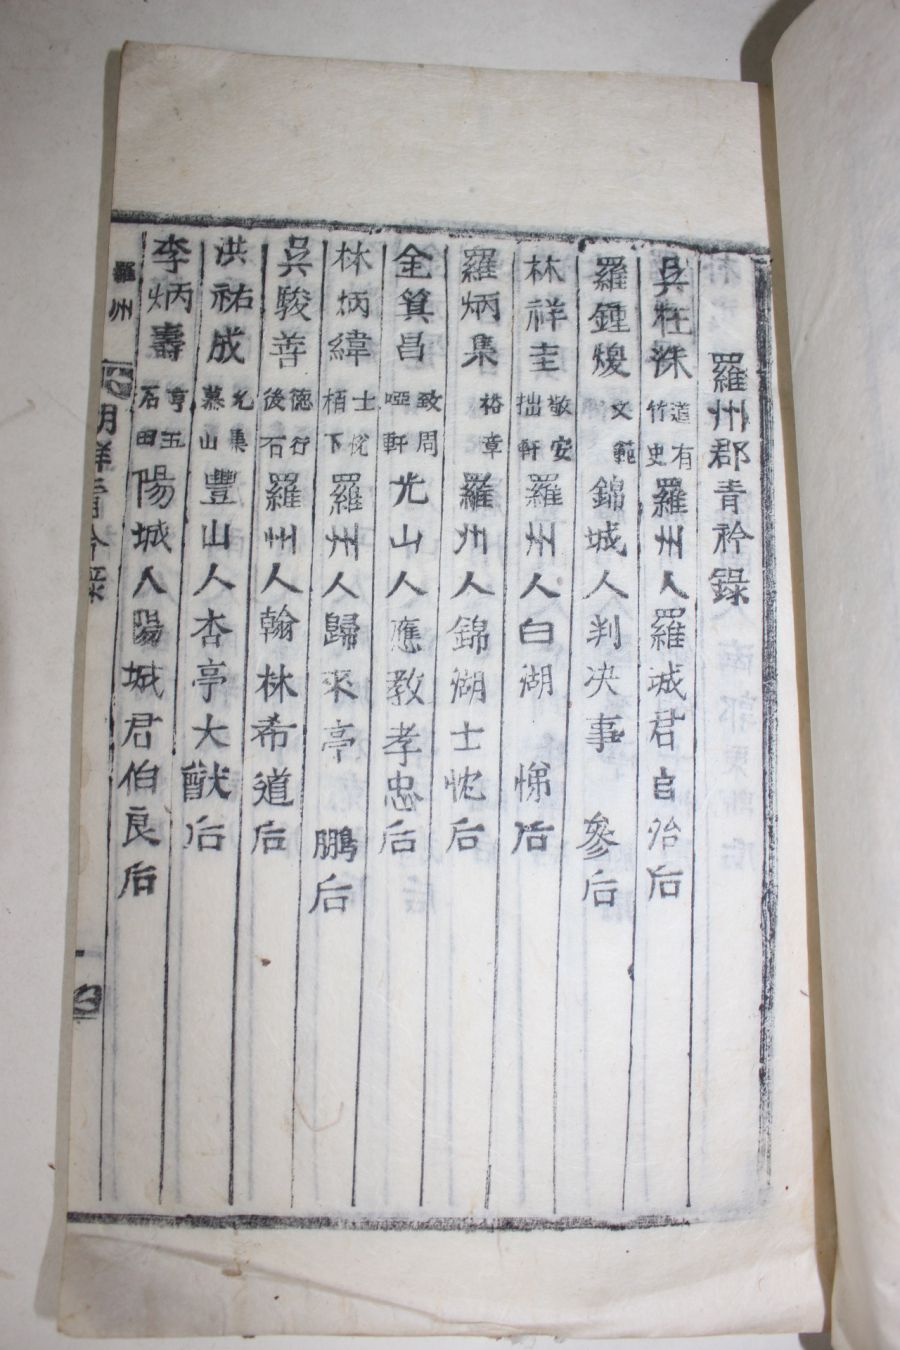 羅州郡青衿錄
吳在洙 道有 竹史 羅州人羅城君自治后
羅鍾㷞 文範 錦城人判決事 參后
林祥圭 敬安 拙軒 羅州人白湖 悌后
羅炳集 裕章 羅州人錦湖士忱后
金箕昌 致周 啞軒 光山人應教孝忠后
林炳緯 士悅 栢下 羅州人歸來亭 鵬后
吳駿善 德行 後石 羅州人翰林希道后
洪祐成 允集 慕山 豐山人杏亭大猷后
李炳壽 亨五 石田 陽城人陽城君伯良后
羅州 湖群青衿錄 一